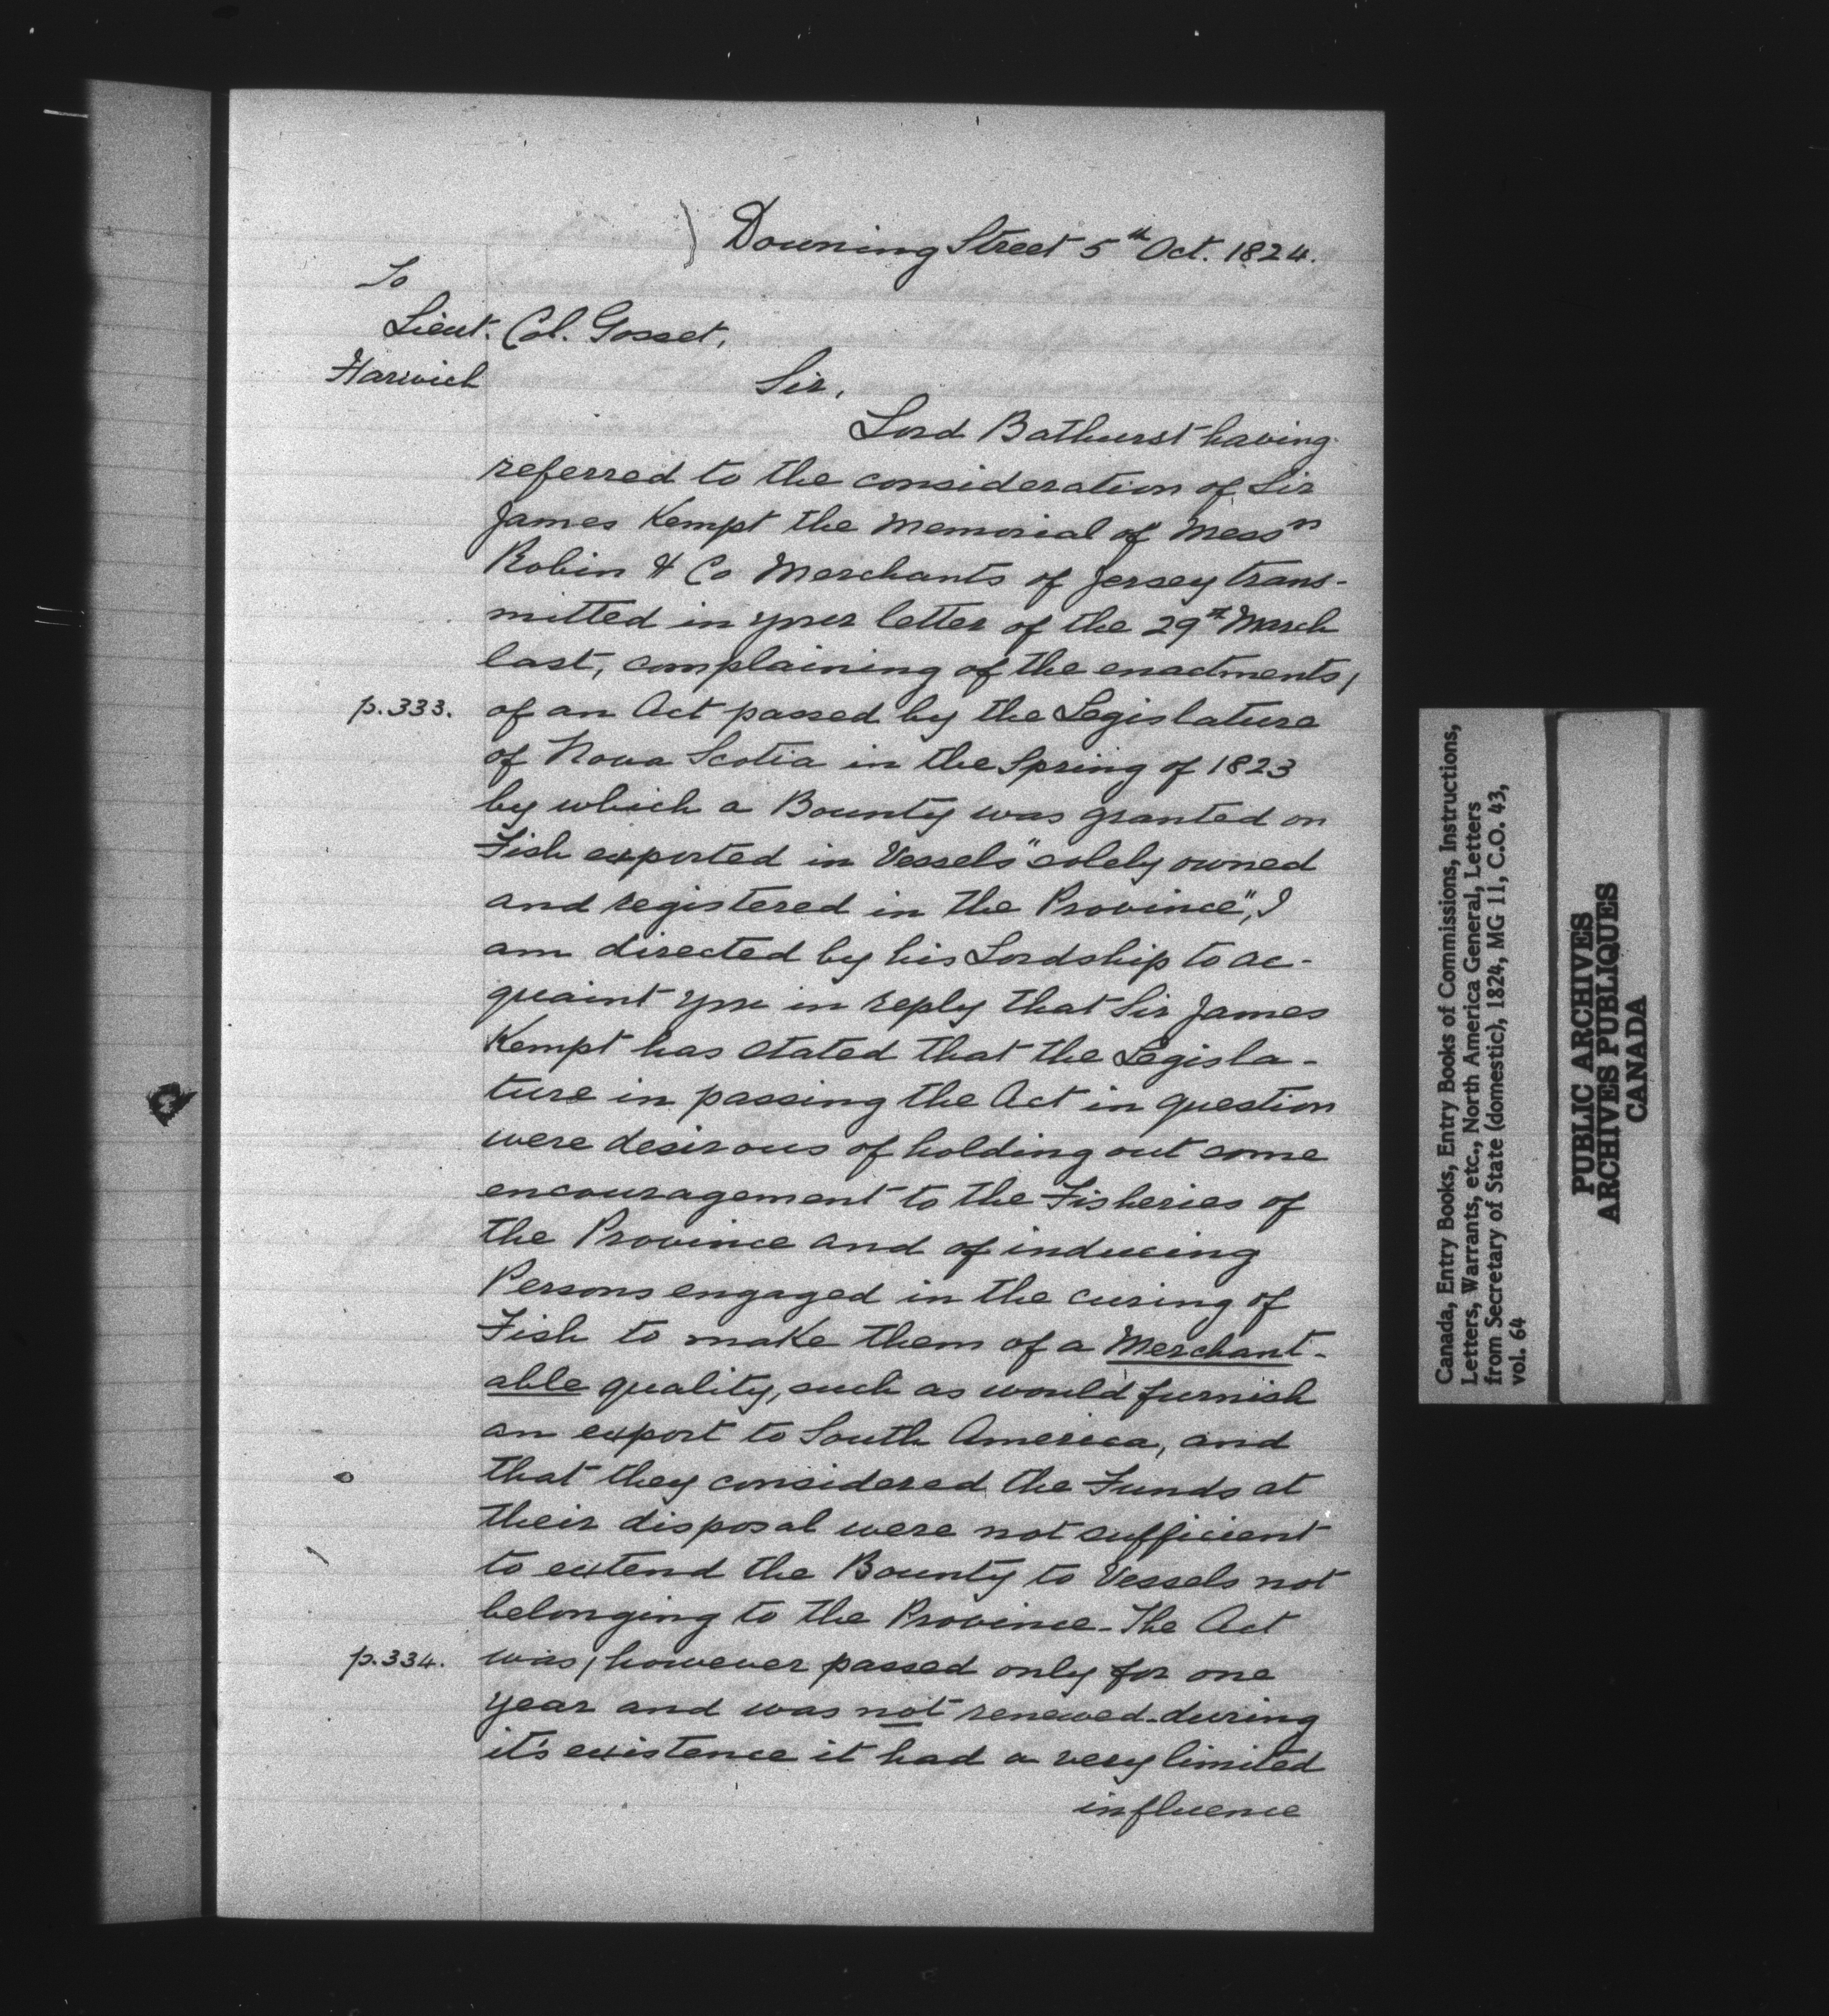 Downing Street 5th Oct. 1824.
To
Lieut. Col. Gosset,
Harwich
Sir,
Lord Bathurst having
referred to the consideration of Sir
James Kempt the Memorial of Messrs
Robin & Co Merchants of Jersey trans-
mitted in your letter of the 29th March
last, complaining of the enactments,
p.333. of an Act passed by the Legislature
of Nova Scotia in the Spring of 1823
by which a Bounty was granted on
Fish exported in Vessels "solely owned
and registered in the Province", I
am directed by his Lordship to ac-
quaint you in reply that Sir James
Kempt has stated that the Legisla-
ture in passing the Act in question
were desirous of holding out some
encouragement to the Fisheries of
the Province and of inducing
Persons engaged in the curing of
Fish to make them of a Merchant-
able quality, such as would furnish
an export to South America, and
that they considered the Funds at
their disposal were not sufficient
to extend the Bounty to Vessels not
belonging to the Province. The Act
p.334. was, however passed only for one
year and was not renewed. during
it's existence it had a very limited
influence
Canada, Entry Books, Entry Books of Commissions, Instructions,
Letters, Warrants, etc., North America General, Letters
from Secretary of State (domestic), 1824, MG 11, C.O. 43,
vol. 64
PUBLIC ARCHIVES
ARCHIVES PUBLIQUES
CANADA